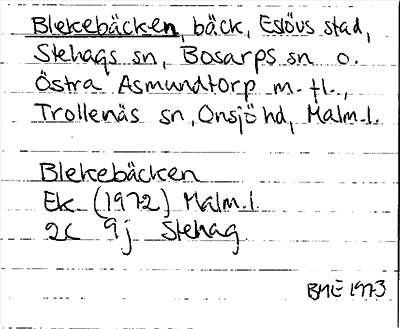 Blekebäcken, bäck, Eslövs stad,
Stehags sn, Bosarps sn o.
Östra Asmundtorp m. fl.,
Trollenäs sn, Onsjö hd, Malm. l.
Blekebäcken
Ek. (1972) Malm. l.
2C 9j Stehag
BME 1973